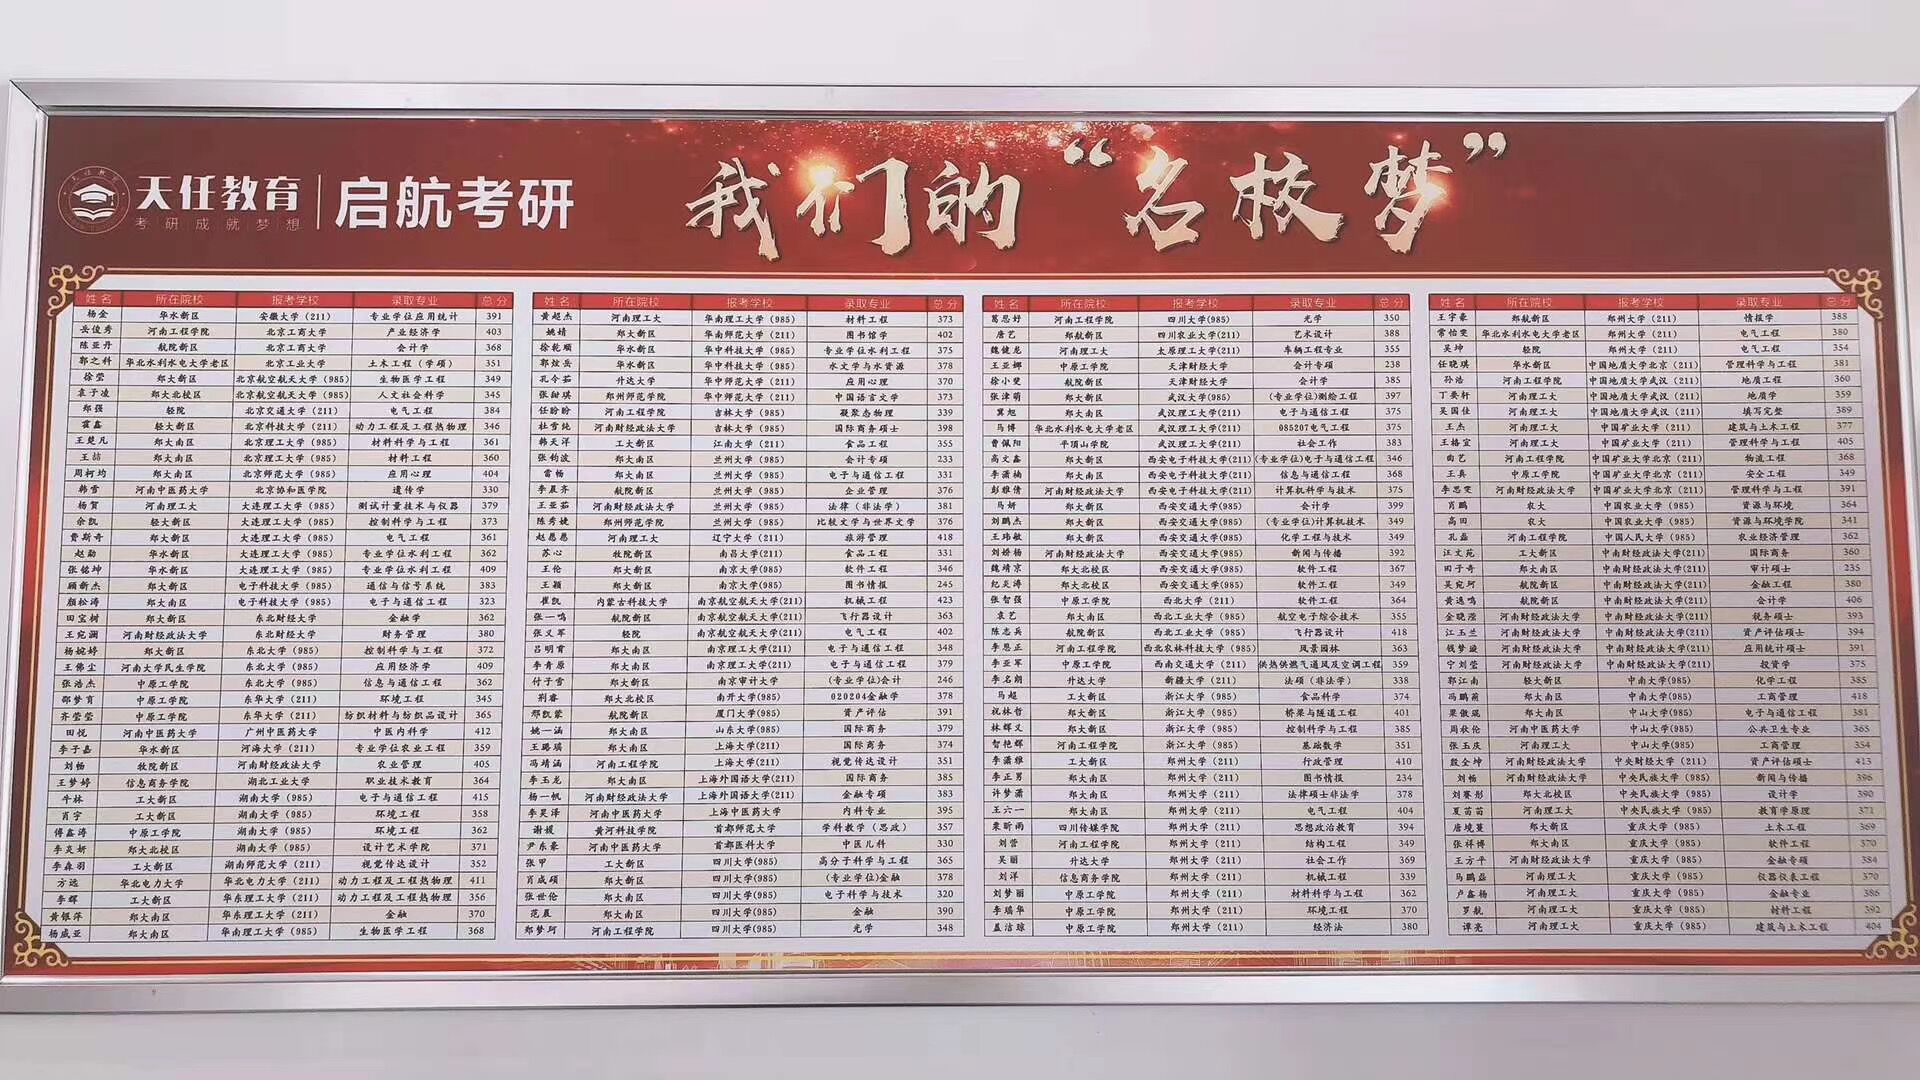 天任教育 启航考研
考研成就梦想
我们的“名校梦”
姓名 所在院校 报考学校 录取专业 总分
杨金 华水新区 安徽大学（211） 专业学位应用统计 391
岳俊秀 河南工程学院 北京工商大学 产业经济学 403
陈亚丹 航院新区 北京工商大学 会计学 368
郭之科 华北水利水电大学老区 北京工业大学 土木工程（学硕） 351
徐莹 郑大新区 北京航空航天大学（985） 生物医学工程 349
袁子凌 郑大北校区 北京航空航天大学（985） 人文社会科学 345
郑强 轻院 北京交通大学（211） 电气工程 384
霍鑫 轻大新区 北京科技大学（211） 动力工程及工程热物理 346
王楚凡 郑大南区 北京理工大学（985） 材料科学与工程 361
王洁 郑大南区 北京理工大学（985） 材料工程 360
周柯均 郑大南区 北京师范大学（985） 应用心理 404
韩雪 河南中医药大学 北京协和医学院 遗传学 330
杨贺 河南理工大 大连理工大学（985） 测试计量技术与仪器 379
余凯 轻大新区 大连理工大学（985） 控制科学与工程 373
费斯奇 郑大新区 大连理工大学（985） 电气工程 361
赵勋 华水新区 大连理工大学（985） 专业学位水利工程 362
张铭坤 华水新区 大连理工大学（985） 专业学位水利工程 409
顾新杰 郑大新区 电子科技大学（985） 通信与信号系统 383
颜松涛 郑大南区 电子科技大学（985） 电子与通信工程 323
田宝树 郑大新区 东北财经大学 金融学 362
王宛澜 河南财经政法大学 东北财经大学 财务管理 380
杨婉婷 郑大新区 东北大学（985） 控制科学与工程 372
王佛尘 河南大学民生学院 东北大学（985） 应用经济学 409
张浩杰 中原工学院 东北大学（985） 信息与通信工程 362
邵梦育 中原工学院 东华大学（211） 环境工程 345
齐莹莹 中原工学院 东华大学（211） 纺织材料与纺织品设计 365
田悦 河南中医药大学 广州中医药大学 中医内科学 412
李子嘉 华水新区 河海大学（211） 专业学位农业工程 359
刘畅 牧院新区 河南财经政法大学 农业管理 405
王梦婷 信息商务学院 湖北工业大学 职业技术教育 364
牛林 工大新区 湖南大学（985） 电子与通信工程 415
肖宇 工大新区 湖南大学（985） 环境工程 358
傅鑫涛 中原工学院 湖南大学（985） 环境工程 362
李炎妍 郑大北校区 湖南大学（985） 设计艺术学院 371
李森羽 工大新区 湖南师范大学（211） 视觉传达设计 352
方远 华北电力大学 华北电力大学（211） 动力工程及工程热物理 411
李辉 工大新区 华东理工大学（211） 动力工程及工程热物理 356
黄银萍 郑大南区 华东理工大学（211） 金融 370
杨成亚 郑大南区 华南理工大学（985） 生物医学工程 368
姓名 所在院校 报考学校 录取专业 总分
黄超杰 河南理工大 华南理工大学（985） 材料工程 373
姚婧 郑大新区 华南师范大学（211） 图书馆学 402
徐乾顺 华水新区 华中科技大学（985） 专业学位水利工程 375
郭炫岳 华水新区 华中科技大学（985） 水文学与水资源 378
孔令茹 升达大学 华中师范大学（211） 应用心理 370
张甜琪 郑州师范学院 华中师范大学（211） 中国语言文学 373
任盼盼 河南工程学院 吉林大学（985） 凝聚态物理 339
杜雪纯 河南财经政法大学 吉林大学（985） 国际商务硕士 398
韩天洋 工大新区 江南大学（211） 食品工程 355
张钧波 郑大南区 兰州大学（985） 会计专硕 233
雷畅 郑大南区 兰州大学（985） 电子与通信工程 331
李晨齐 航院新区 兰州大学（985） 企业管理 376
王亚茹 河南财经政法大学 兰州大学（985） 法律（非法学） 381
陈秀婕 郑州师范学院 兰州大学（985） 比较文学与世界文学 376
赵愿愿 河南理工大 辽宁大学（211） 旅游管理 418
苏心 牧院新区 南昌大学(211) 食品工程 331
王伦 郑大新区 南京大学(985) 软件工程 346
王颖 郑大新区 南京大学(985) 图书情报 245
崔凯 内蒙古科技大学 南京航空航天大学(211) 机械工程 423
张一鸣 航院新区 南京航空航天大学(211) 飞行器设计 363
张义军 轻院 南京航空航天大学(211) 电气工程 402
吕明甯 郑大南区 南京理工大学（211） 电子与通信工程 348
李青原 郑大南区 南京理工大学（211） 电子与通信工程 379
付子雪 郑大新区 南京审计大学 (专业学位)会计 246
荆睿 郑大北校区 南开大学(985) 020204金融学 378
邢凯蒙 航院新区 厦门大学(985) 资产评估 391
姚一涵 郑大南区 山东大学(985) 国际商务 379
王璐瑱 郑大南区 上海大学(211) 国际商务 374
冯靖涵 河南工程学院 上海大学(211) 视觉传达设计 351
李玉龙 郑大南区 上海外国语大学(211) 国际商务 385
杨一帆 河南财经政法大学 上海外国语大学(211) 金融专硕 383
李昊泽 河南中医药大学 上海中医药大学 内科专业 395
谢媛 黄河科技学院 首都师范大学 学科教学（思政） 357
尹东豪 河南中医药大学 首都医科大学 中医儿科 330
张甲 工大新区 四川大学(985) 高分子科学与工程 365
肖成硕 郑大新区 四川大学(985) (专业学位)金融 378
张世伦 郑大南区 四川大学(985) 电子科学与技术 320
范晨 郑大南区 四川大学(985) 金融 390
郑梦珂 河南工程学院 四川大学(985) 光学 348
姓名 所在院校 报考学校 录取专业 总分
葛思好 河南工程学院 四川大学(985) 光学 350
唐艺 郑航新区 四川农业大学(211) 艺术设计 388
魏健龙 河南理工大 太原理工大学(211) 车辆工程专业 355
王亚娜 中原工学院 天津财经大学 会计专硕 238
徐小斐 航院新区 天津财经大学 会计学 385
张津萌 郑大新区 武汉大学(985) (专业学位)测绘工程 397
冀旭 郑大南区 武汉理工大学(211) 电子与通信工程 375
马博 华北水利水电大学老区 武汉理工大学(211) 085207电气工程 375
曹佩阳 平顶山学院 武汉理工大学(211) 社会工作 383
高文鑫 郑大新区 西安电子科技大学(211) (专业学位)电子与通信工程 346
李潇楠 郑大新区 西安电子科技大学(211) 信息与通信工程 368
彭雅倩 河南财经政法大学 西安电子科技大学(211) 计算机科学与技术 375
马妍 郑大新区 西安交通大学(985) 会计学 399
刘鹏杰 郑大新区 西安交通大学(985) (专业学位)计算机技术 349
王玮敏 郑大新区 西安交通大学(985) 化学工程与技术 349
刘娇杨 河南财经政法大学 西安交通大学(985) 新闻与传播 392
魏靖京 郑大北校区 西安交通大学(985) 软件工程 367
纪炎涛 郑大北校区 西安交通大学(985) 软件工程 349
张智强 中原工学院 西北大学（211） 软件工程 364
袁艺 郑大南区 西北工业大学（985） 航空电子综合技术 355
陈志兵 航院新区 西北工业大学（985） 飞行器设计 418
李思正 河南工程学院 西北农林科技大学（985） 风景园林 363
李亚军 中原工学院 西南交通大学（211） 供热供燃气通风及空调工程 359
李名朗 升达大学 新疆大学（211） 法硕（非法学） 338
马超 工大新区 浙江大学（985） 食品科学 374
祝林哲 郑大新区 浙江大学（985） 桥梁与隧道工程 401
林辉义 郑大新区 浙江大学（985） 控制科学与工程 385
智艳辉 河南工程学院 浙江大学（985） 基础数学 351
李潇雅 工大新区 郑州大学（211） 行政管理 410
李正男 郑大南区 郑州大学（211） 图书情报 234
许梦潇 郑大南区 郑州大学（211） 法律硕士非法学 378
王六一 郑大南区 郑州大学（211） 电气工程 404
栗昕雨 四川传媒学院 郑州大学（211） 思想政治教育 394
刘营 河南工程学院 郑州大学（211） 结构工程 349
吴丽 升达大学 郑州大学（211） 社会工作 369
刘洋 信息商务学院 郑州大学（211） 机械工程 339
刘梦丽 中原工学院 郑州大学（211） 材料科学与工程 362
李瑞华 中原工学院 郑州大学（211） 环境工程 370
孟洁琼 中原工学院 郑州大学（211） 经济法 380
姓名 所在院校 报考学校 录取专业 总分
王宇豪 郑航新区 郑州大学（211） 情报学 388
常怡雯 华北水利水电大学老区 郑州大学（211） 电气工程 380
吴坤 轻院 郑州大学（211） 电气工程 354
任晓琪 华水新区 中国地质大学北京（211） 管理科学与工程 381
孙浩 河南工程学院 中国地质大学武汉（211） 地质工程 360
丁要轩 河南理工大 中国地质大学武汉（211） 地质学 359
吴国佳 河南理工大 中国地质大学武汉（211） 填写完整 389
王杰 河南理工大 中国矿业大学（211） 建筑与土木工程 377
王楷宜 河南理工大 中国矿业大学（211） 管理科学与工程 405
曲艺 河南工程学院 中国矿业大学北京（211） 物流工程 368
王真 中原工学院 中国矿业大学北京（211） 安全工程 349
李思雯 河南财经政法大学 中国矿业大学北京（211） 管理科学与工程 391
肖鹏 农大 中国农业大学（985） 资源与环境 364
高田 农大 中国农业大学（985） 资源与环境学院 341
孔磊 河南工程学院 中国人民大学（985） 农业经济管理 362
汪文苑 工大新区 中南财经政法大学(211) 国际商务 360
田子奇 郑大南区 中南财经政法大学(211) 审计硕士 235
吴宛珂 航院新区 中南财经政法大学(211) 金融工程 380
黄逸鸣 航院新区 中南财经政法大学(211) 会计学 406
金晓滢 河南财经政法大学 中南财经政法大学(211) 税务硕士 393
江玉兰 河南财经政法大学 中南财经政法大学(211) 资产评估硕士 394
钱梦璇 河南财经政法大学 中南财经政法大学(211) 应用统计硕士 391
宁刘莹 河南财经政法大学 中南财经政法大学(211) 投资学 375
郭江南 轻大新区 中南大学(985) 化学工程 385
冯鹏前 郑大南区 中南大学(985) 工商管理 418
梁傲琨 郑大南区 中山大学(985) 电子与通信工程 381
周秋伦 河南中医药大学 中山大学(985) 公共卫生专业 365
张玉庆 河南理工大 中山大学(985) 工商管理 354
殷全坤 河南财经政法大学 中央财经大学（211） 资产评估硕士 413
刘畅 河南财经政法大学 中央民族大学（985） 新闻与传播 396
刘赛彤 郑大北校区 中央民族大学（985） 设计学 390
夏苗苗 河南理工大 中央民族大学（985） 教育学原理 371
唐境蔓 郑大新区 重庆大学（985） 土木工程 369
张祥博 郑大新区 重庆大学（985） 软件工程 370
王方平 河南财经政法大学 重庆大学（985） 金融专硕 384
马鹏磊 河南理工大 重庆大学（985） 仪器仪表工程 370
卢鑫杨 河南理工大 重庆大学（985） 金融专业 386
罗航 河南理工大 重庆大学（985） 材料工程 392
谭亮 河南理工大 重庆大学（985） 建筑与土木工程 404